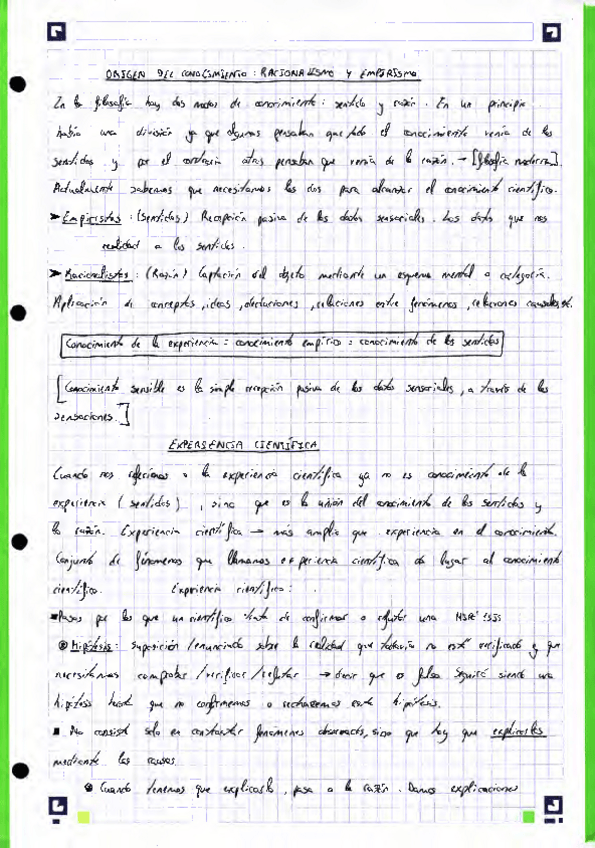 ORIGEN DEL CONOCIMIENTO: RACIONALISMO Y EMPIRISMO
En la filosofía hay dos modos de conocimiento: sentido y razón. En un principio
había una división ya que algunos pensaban que todo el conocimiento venía de los
sentidos y por el contrario otros pensaban que venía de la razón. → [filosofía moderna].
Actualmente sabemos que necesitamos los dos para alcanzar el conocimiento científico.
➤ Empiristas: (Sentidos) Recepción pasiva de los datos sensoriales. Los datos que nos
realidad a los sentidos.
➤ Racionalistas: (Razón) Captación del objeto mediante un esquema mental o categoría.
Aplicación de conceptos, ideas, deducciones, relaciones entre fenómenos, relaciones causales, etc.
Conocimiento de la experiencia = conocimiento empírico = conocimiento de los sentidos
[Conocimiento sensible es la simple recepción pasiva de los datos sensoriales, a través de las
sensaciones.]
EXPERIENCIA CIENTÍFICA
Cuando nos referimos a la experiencia científica ya no es conocimiento de la
experiencia (sentidos), sino que es la unión del conocimiento de los sentidos y
la razón. Experiencia científica → más amplia que experiencia en el conocimiento.
Conjunto de fenómenos que llamamos experiencia científica da lugar al conocimiento
científico. Experiencia científica:
■ Pasos por los que un científico trata de confirmar o refutar una
Hipótesis: suposición/enunciado sobre la realidad que todavía no está verificado y que
necesitamos comprobar/verificar/refutar → decir que es falsa. Seguirá siendo una
hipótesis hasta que no confirmemos o rechacemos esta hipótesis.
■ No consist solo en constatar fenómenos observados, sino que hay que explicarlos
mediante las causas.
Cuando tenemos que explicarlo, pasa a la razón. Damos explicaciones